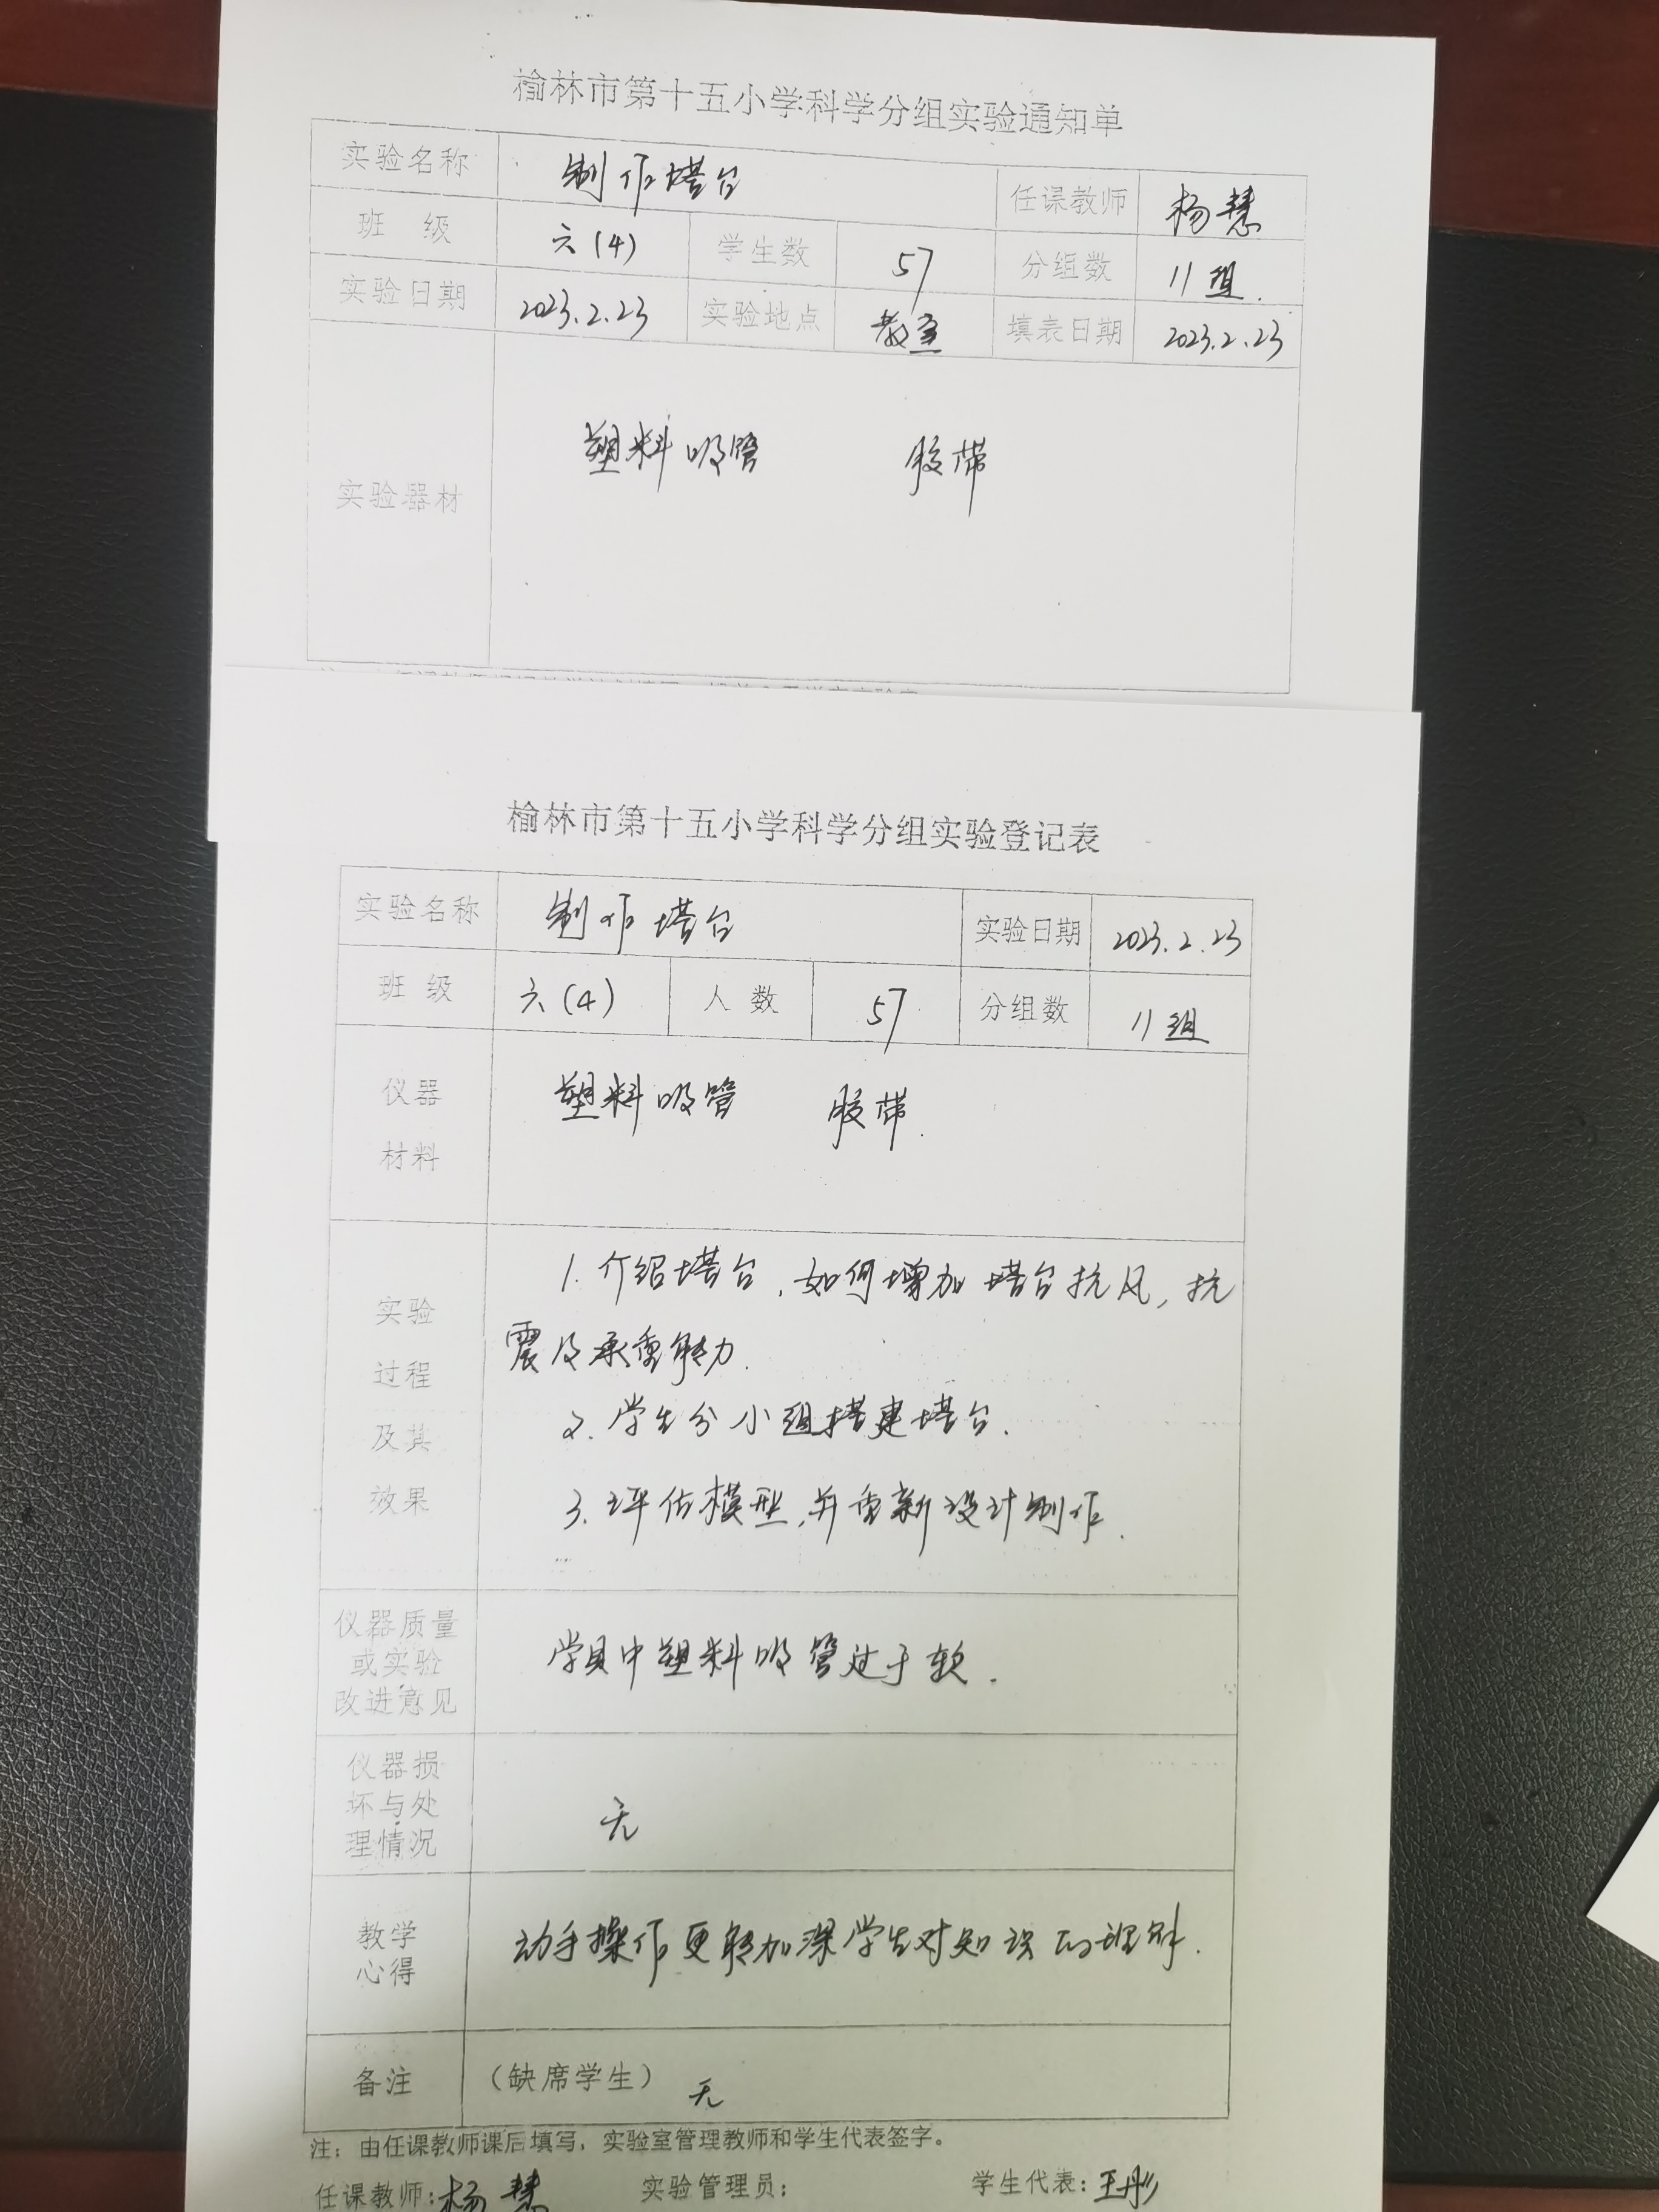 榆林市第十五小学科学分组实验通知单
实验名称 制作塔台 任课教师 杨慧
班 级 六(4) 学生数 57 分组数 11组.
实验日期 2023.2.23 实验地点 教室 填表日期 2023.2.23
实验器材 塑料吸管 胶带
榆林市第十五小学科学分组实验登记表
实验名称 制作塔台 实验日期 2023.2.23
班 级 六(4) 人 数 57 分组数 11组
仪器 塑料吸管 胶带.
材料
1.介绍塔台,如何增加塔台抗风,抗
实验
震及承重能力.
过程
2.学生分小组搭建塔台.
及其
效果 3.评估模型,并重新设计制作.
仪器质量
或实验 学具中塑料吸管过于软.
改进意见
仪器损
坏与处 无
理情况
教学 动手操作更能加深学生对知识的理解.
心得
备注 (缺席学生) 无
注:由任课教师课后填写,实验室管理教师和学生代表签字。
任课教师:杨慧 实验管理员: 学生代表:王彤